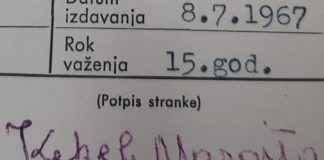 Datum
izdavanja 8.7.1967
Rok
važenja 15.god.
(Potpis stranke)